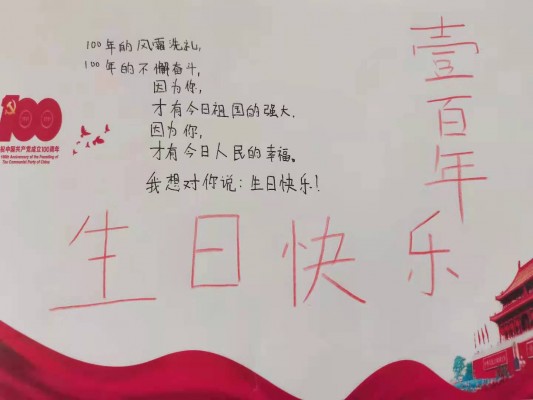 100年的风霜洗礼,
100年的不懈奋斗,
因为你,
才有今日祖国的强大.
因为你,
才有今日人民的幸福。
我想对你说:生日快乐!
壹百年
生日快乐
100
祝中国共产党成立100周年
100th Anniversary of the Founding of
The Communist Party of China